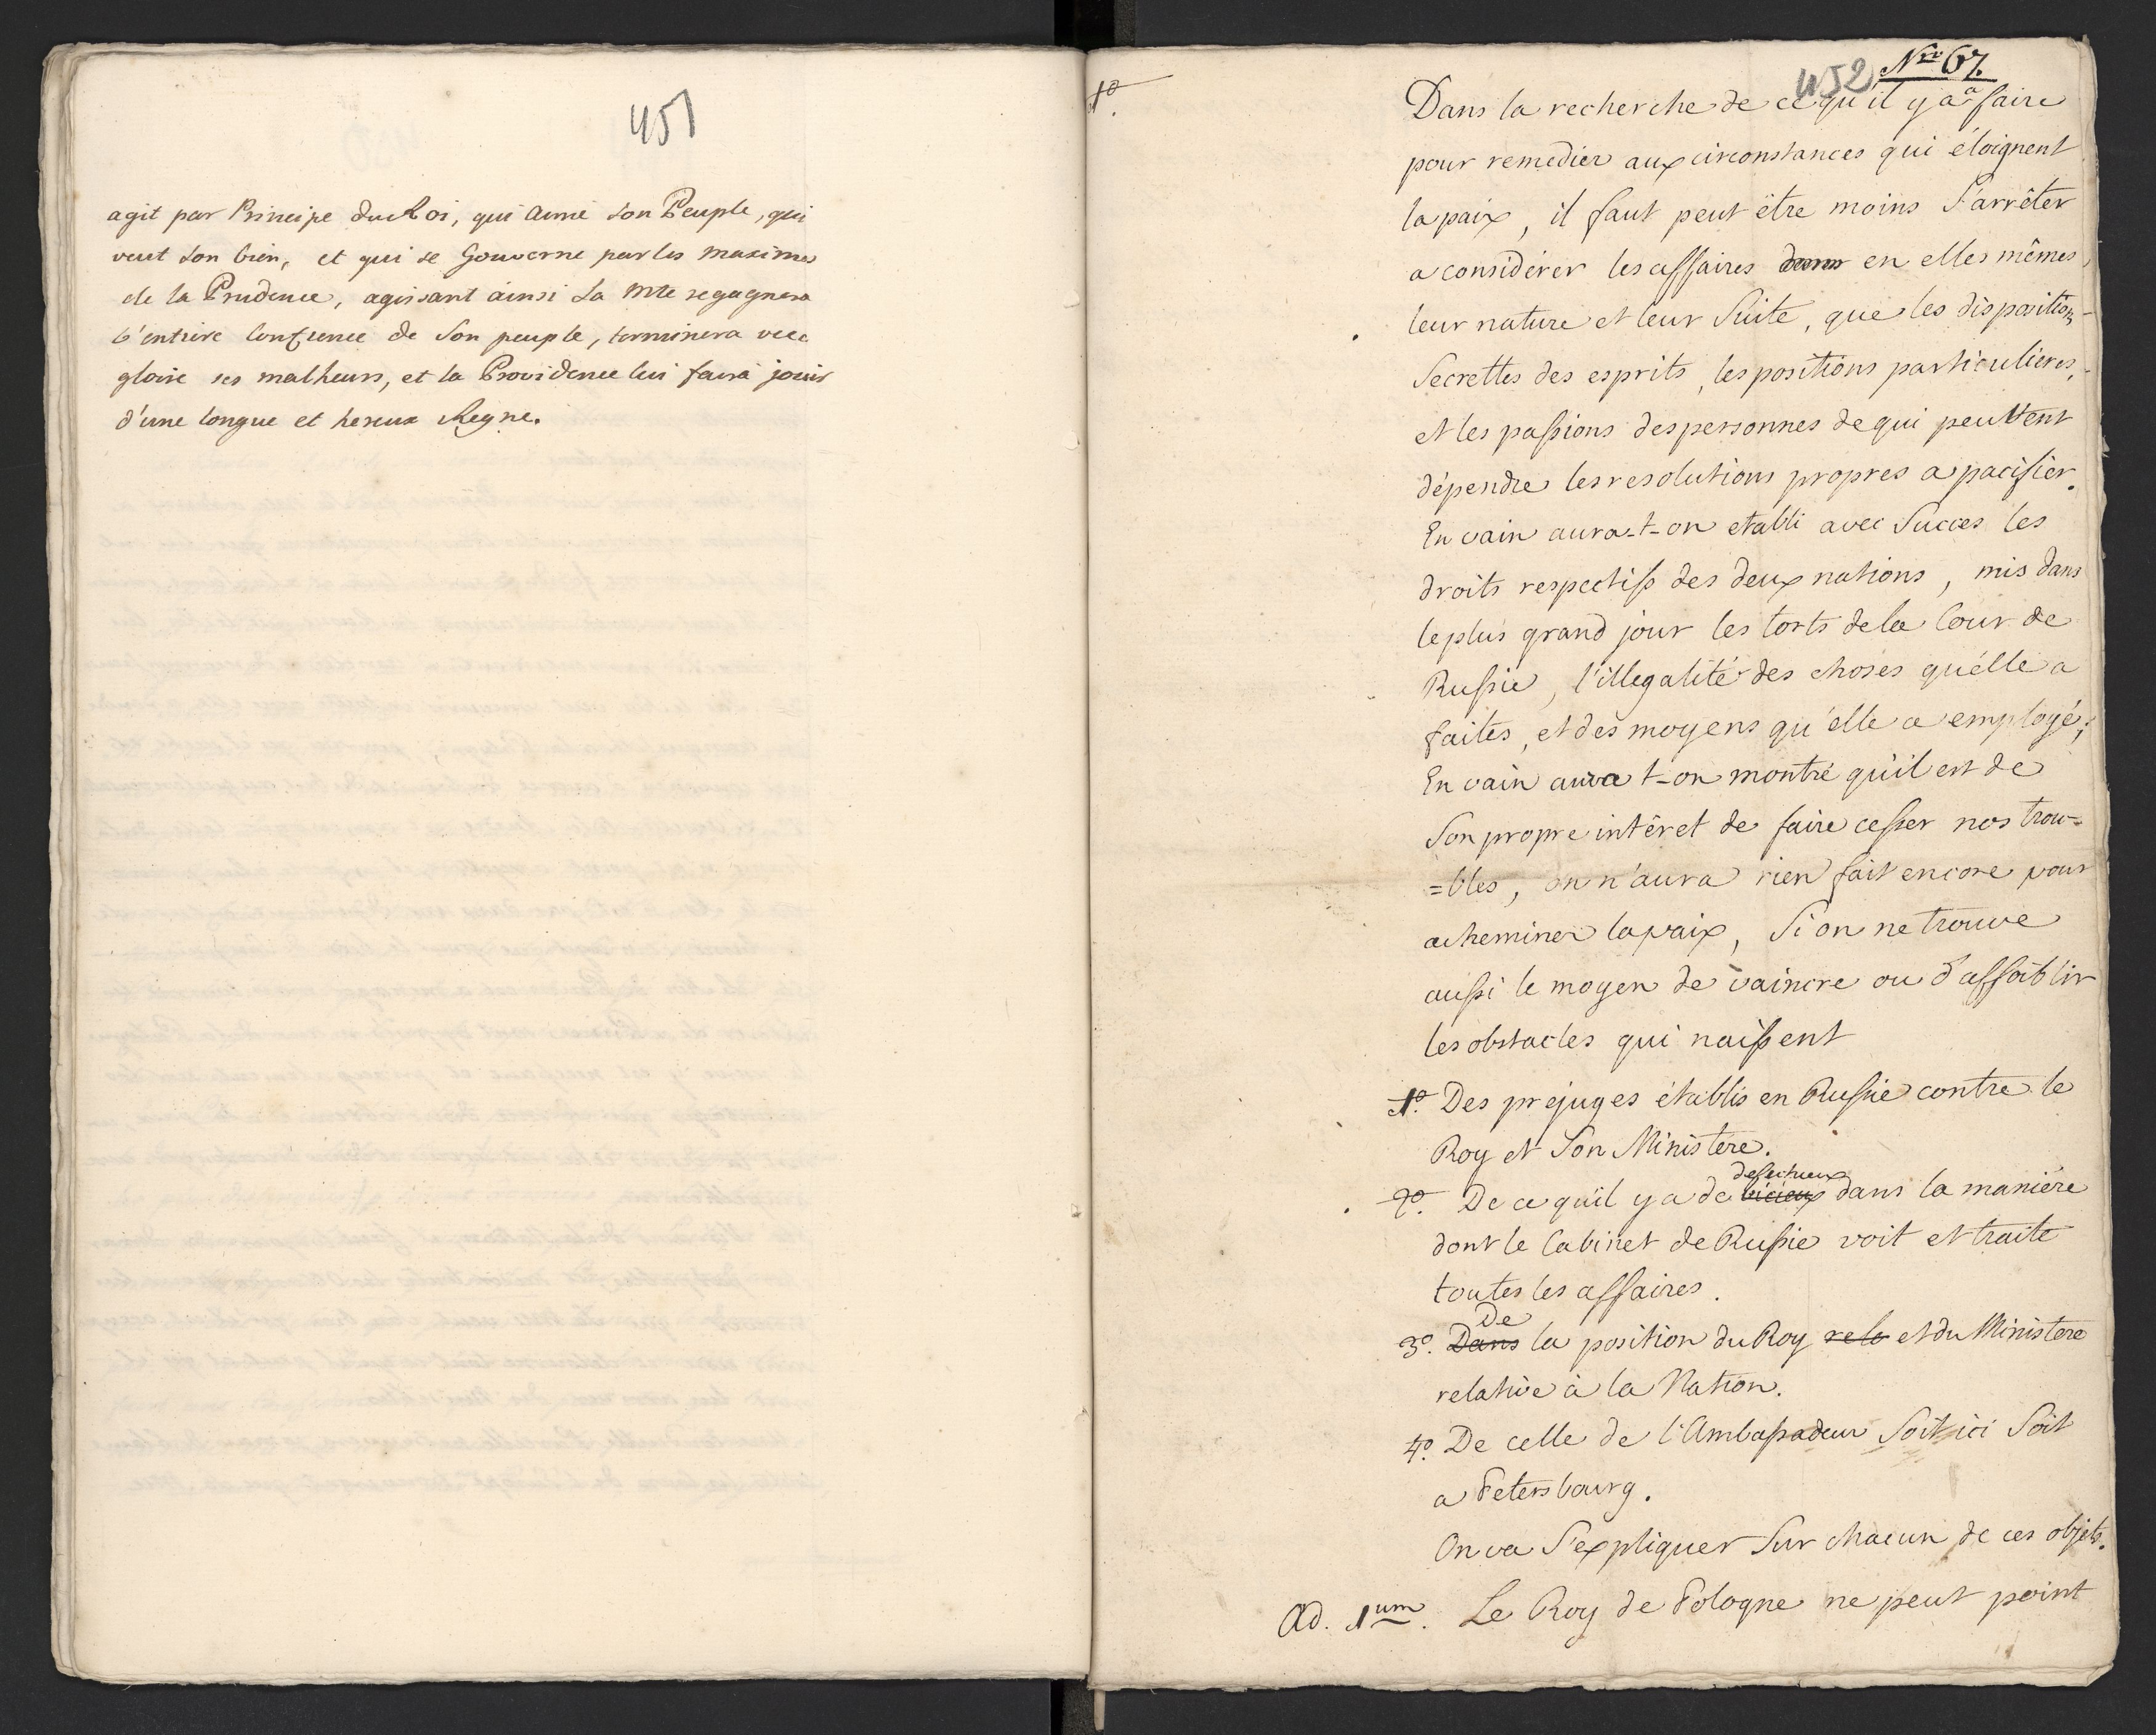 451
agit par Principe du Roi, qui aime son Peuple, qui
veut son bien, et qui se Gouverne par les maximes
de la Prudence, agissant ainsi Sa Mte regagnera
l'entiere confience de son peuple, terminera avec
gloire ses malheurs, et la Providence lui faira jouir
d'une longue et hereux Regne.
1º.
452 Nro 67.
Dans la recherche de ce qu'il y a à faire
pour remedier aux circonstances qui éloignent
la paix, il faut peut être moins s'arrêter
a considérer les affaires dans en elles mêmes,
leur nature et leur Suite, que les dispositions
Secrettes des esprits, les positions particulieres,
et les passions des personnes de qui peuvent
dépendre les resolutions propres a pacifier.
En vain aura-t-on etabli avec Succes les
droits respectifs des deux nations, mis dans
le plus grand jour les torts de la Cour de
Russie, l'illegalité des choses qu'elle a
faites, et des moyens qu'elle a employé;
En vain aura t-on montré qu'il est de
Son propre intêret de faire cesser nos trou=
=bles, on n'aura rien fait encore pour
acheminer la paix, Si on ne trouve
aussi le moyen de vaincre ou d'affoiblir
les obstacles qui naissent
1º. Des prejuges établis en Russie contre le
Roy et Son Ministere.
defectueux
2º. De ce qu'il y a de vicieux dans la maniére
dont le Cabinet de Russie voit et traite
toutes les affaires.
De
3º. Dans la position du Roy rela et du Ministere
relative à la Nation.
4º. De celle de l'Ambassadeur Soit ici Soit
a Petersbourg.
On va S'expliquer Sur chacun de ces objets.
Ad. 1um. Le Roy de Pologne ne peut point